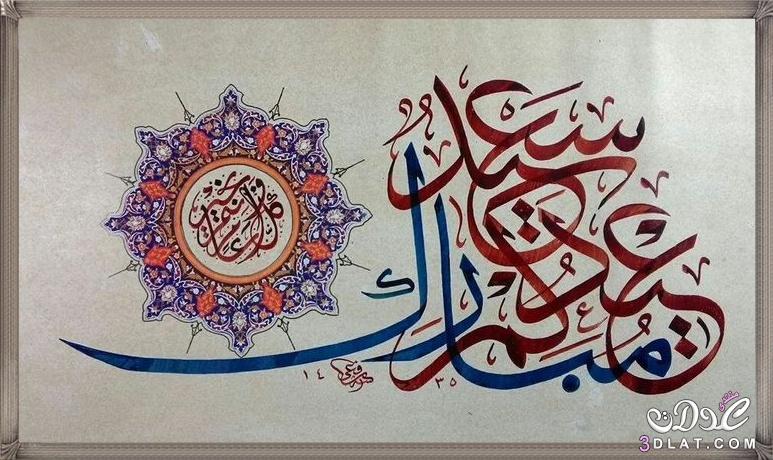 عيدكم
سعيد
مبارك
وكل عام وأنتم بخير
١٤
٣٥
منتدى
عدلات
3DLAT.COM